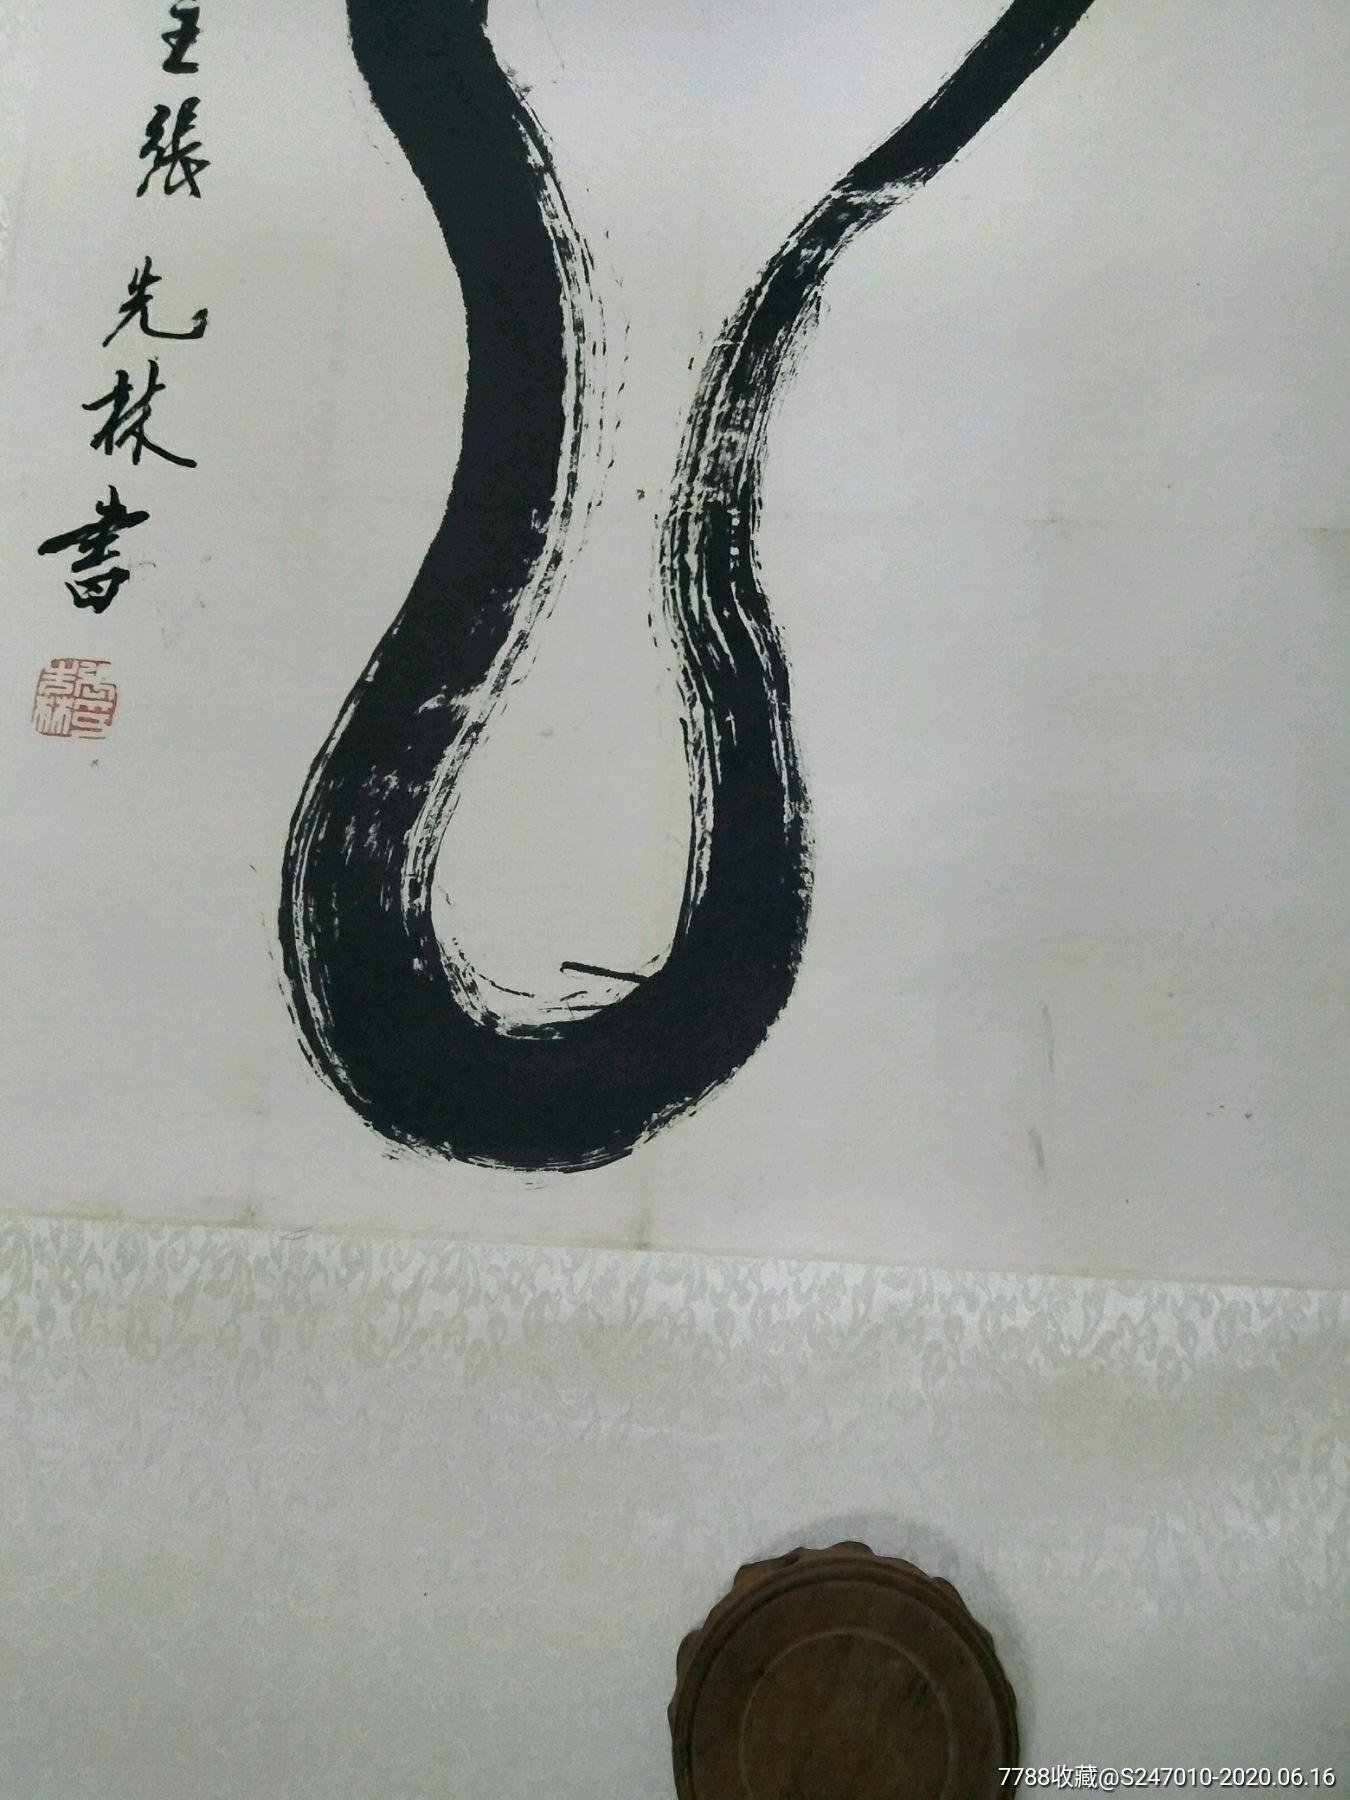 主張先林書
7788收藏@S247010-2020.06.16